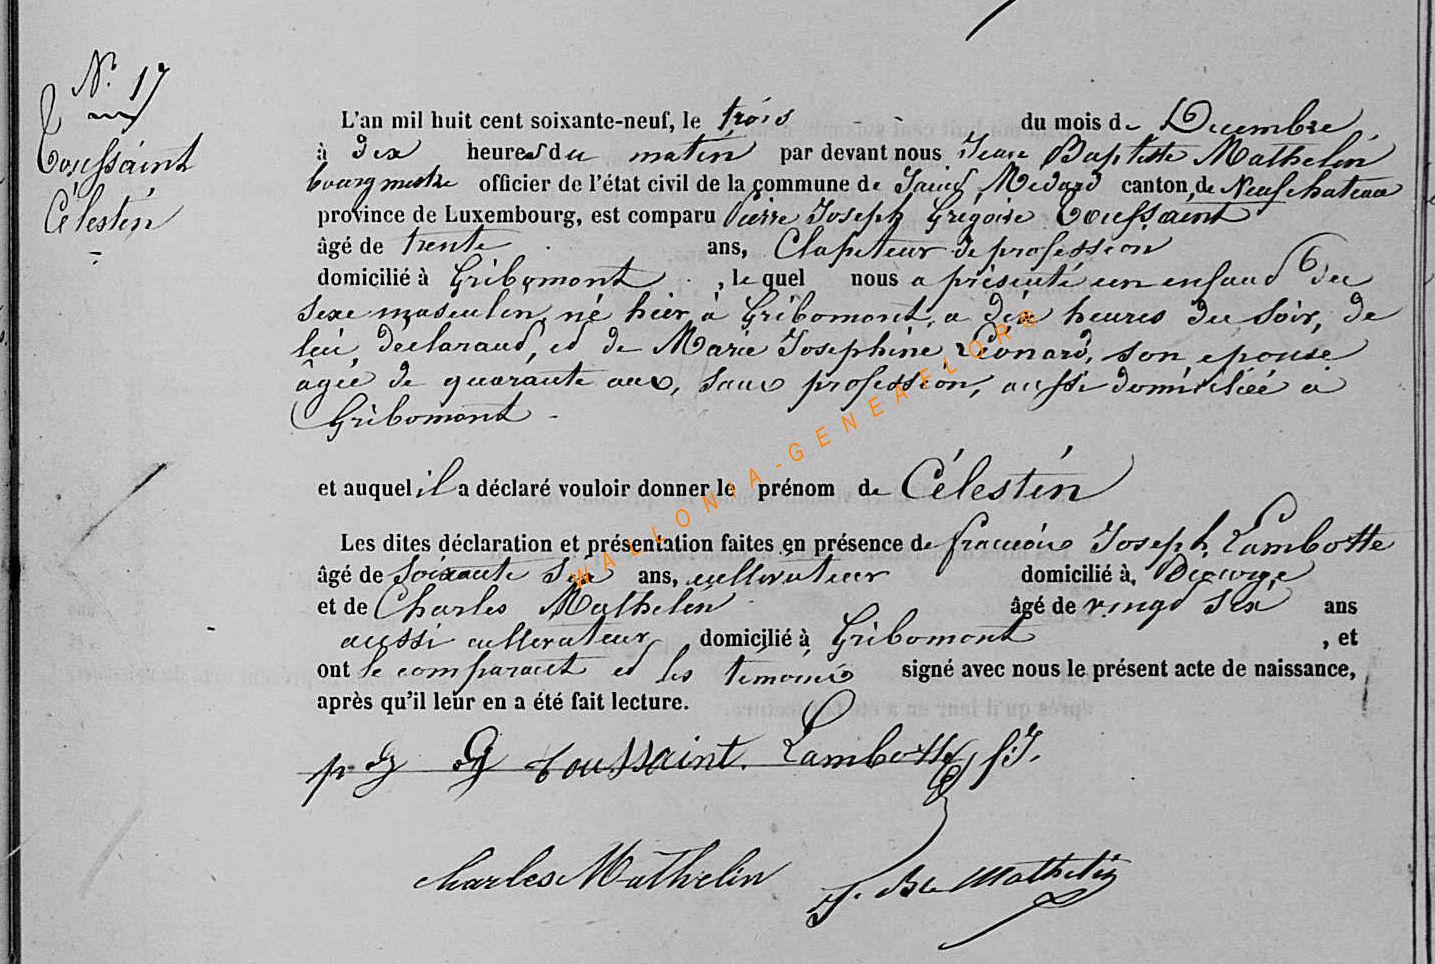 N.° 17
Toussaint
Célestin
L'an mil huit cent soixante-neuf, le trois - - du mois de Décembre,
à dix heures du matin par devant nous Jean Baptiste Mathelin
bourgmestre officier de l'état civil de la commune de Saint Médard canton de Neufchateau
province de Luxembourg, est comparu Pierre Joseph Grégoire Toussaint
âgé de trente ans, Clapeteur de profession
domicilié à Gribomont, le quel nous a présenté un enfant du
sexe masculin, né hier à Gribomont, a dix heures du soir, de
lui, déclarant, et de Marie Josephine Léonard, son épouse
âgée de quarante ans, sans profession, aussi domiciliée à
Gribomont -
et auquel il a déclaré vouloir donner le prénom de Célestin
Les dites déclaration et présentation faites en présence de françois Joseph Lambotte
âgé de soixante six ans, cultivateur domicilié à
et de Charles Mathelin âgé de vingt six ans
aussi cultivateur domicilié à Gribomont, et
ont le comparant et les témoins signé avec nous le présent acte de naissance,
après qu'il leur en a été fait lecture.
p j g toussaint. Lambotte, f.J.
charles Mathelin J. Bte Mathelin
WALLONIA-GENEAFLORE